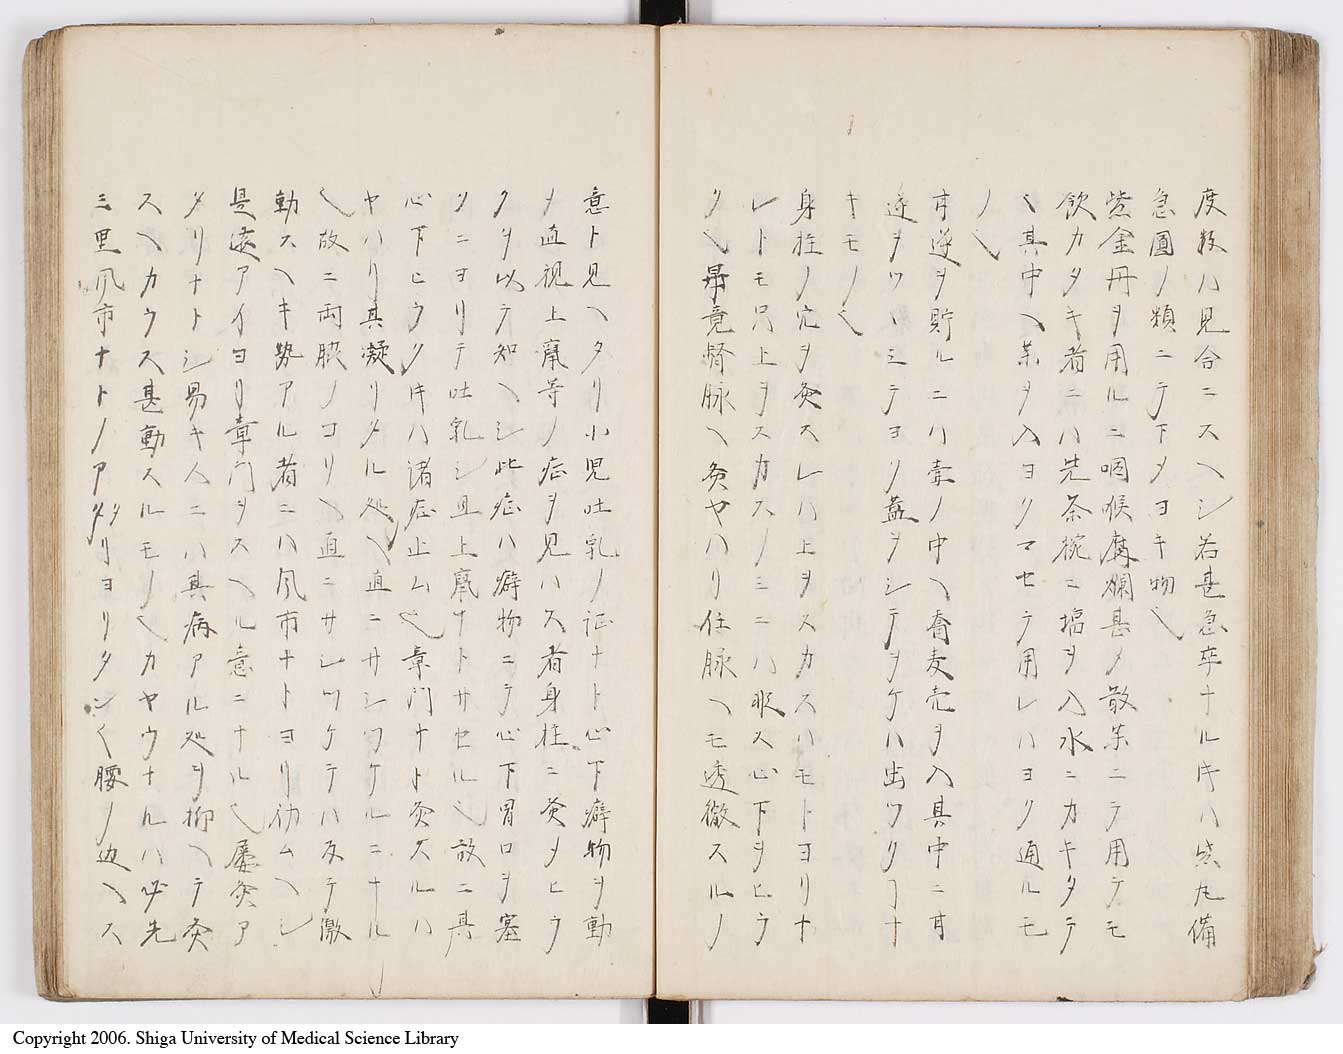 度数ハ見合ニスヘシ若甚急卒ナルキハ紫丸備
急圓ノ類ニテ下タヨキ物也
紫金丹ヲ用ルニ咽喉腐爛甚〆散薬ニテ用テモ
飲カタキ者ニハ先茶椀ニ塩ヲ入水ニカキタテ
ヽ其中ヘ薬ヲ入ヨクマセテ用レハヨク通ルモ
ノ也
甘遂ヲ貯ルニハ壷ノ中ヘ喬麦売ヲ入其中ニ甘
遂ヲツヽミテヨク蓋ヲシテヲケハ出ツクヿナ
キモノ也
身柱ノ穴ヲ灸スレハ上ヲスカスハモトヨリナ
レトモ只上ヲスカスノミニハ限ス心下ヲヒラ
ク也畢竟督脉ヘ灸ヤハリ任脉ヘモ透徹スルノ
意ト見ヘタリ小児吐乳ノ証ナト心下癖物ヲ動
〆直視上竄等ノ症ヲ見ハス者身柱ニ灸ヲヒラ
クヲ以テ知ヘシ此症ハ癖物ニテ心下胃口ヲ塞
クニヨリテ吐乳シ且上竄ナトサセル也故ニ其
心下ヒラクキハ諸症止ム也章門ナト灸スルハ
ヤハリ其凝リタル処ヘ直ニサシツケルニナル
也故ニ両脇ノコリヘ直ニサシツケテハ反テ激
動スヘキ勢アル者ニハ風市ナトヨリ彷ムヘシ
是遠アイヨリ章門ヲスヘル意ニナル也屡灸ア
タリナトシ易キ人ニハ其病アル処ヲ抑ヘテ灸
スヘカラス甚動スルモノ也カヤウナルハ必先
三里風市ナトノアタリヨリタン〱腰ノ辺ヘス
Copyright 2006. Shiga University of Medical Science Library